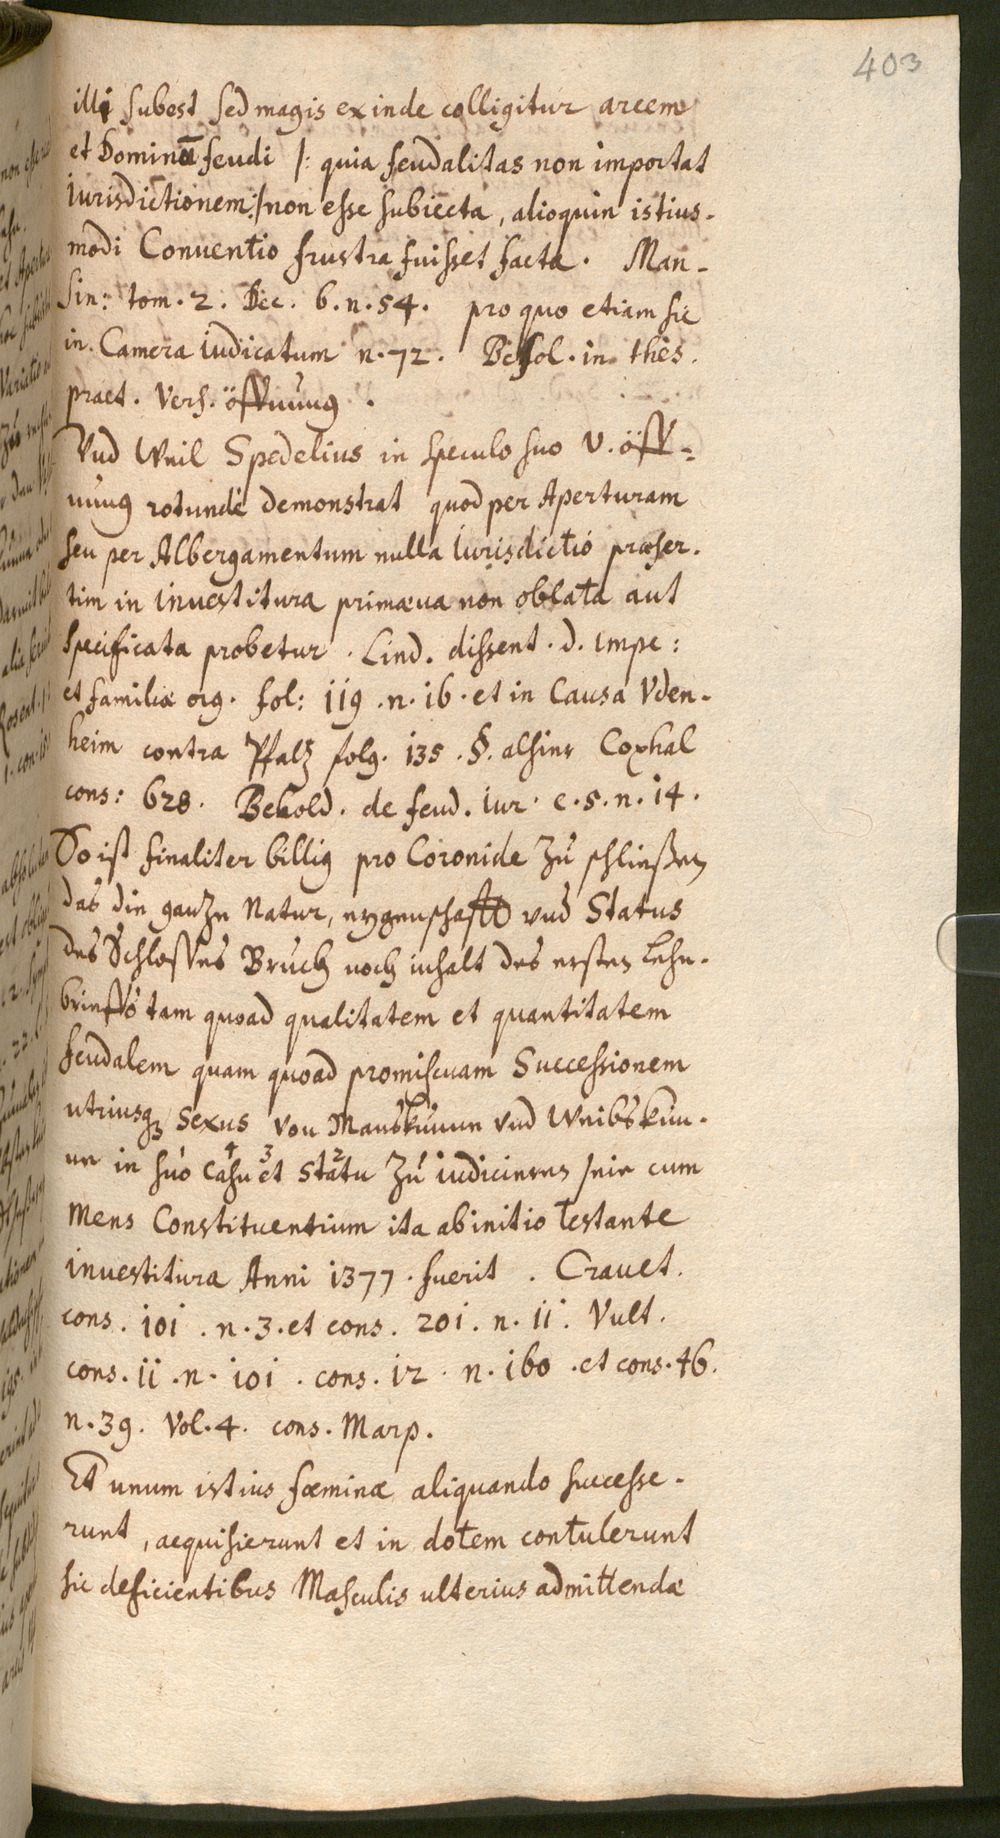 403
illi subest sed magis exinde colligitur arcem
et Dominā feudi /: quia feudalitas non importat
Iurisdictionem :/ non esse subiecta, alioquin istius-
modi Conventio frustra fuisset facta. Man-
sin: tom. 2. Dec. 6. n. 54. pro quo etiam sic
in Camera iudicatum n. 72. Besol. in thes.
pract. Vers. öffnung.
Vnd weil Spedelius in speculo suo V. öff-
nung rotundè demonstrat quod per Aperturam
seu per Albergamentum nulla Iurisdictio præser-
tim in investitura primæua non oblata aut
specificata probetur. Lind. dissent. d. impe:
et familiæ org. fol: 119. n. 16. et in Causa Vden-
heim contra Pfaltz folg. 135. §. alsins Coxhal
cons: 628. Besold. de feud. iur. c. 5. n. 14.
So ist finaliter billig pro Coronide zu schließen
das die gantze Natur, eygenschafft vnd Status
des Schlosses Bruch noch inhalt des ersten Lehn-
brieffs tam quoad qualitatem et quantitatem
feudalem quam quoad promiscuam Successionem
utriusq3 sexus von Manskunne vnd Weibskun-
ne in suo Casu 4 et 3 Statu 2 zu iudicieren seie cum
Mens Constituentium ita ab initio testante
investitura Anni 1377. fuerit. Crauet.
cons. 101. n. 3. et cons. 201. n. 11. Vult.
cons. 11. n. 101. cons. 12. n. 160. et cons. 46.
n. 39. Vol. 4. cons. Marp.
Et unum istius fœminæ aliquando successe-
runt, acquisierunt et in dotem contulerunt
sic deficientibus Masculis ulterius admittendæ